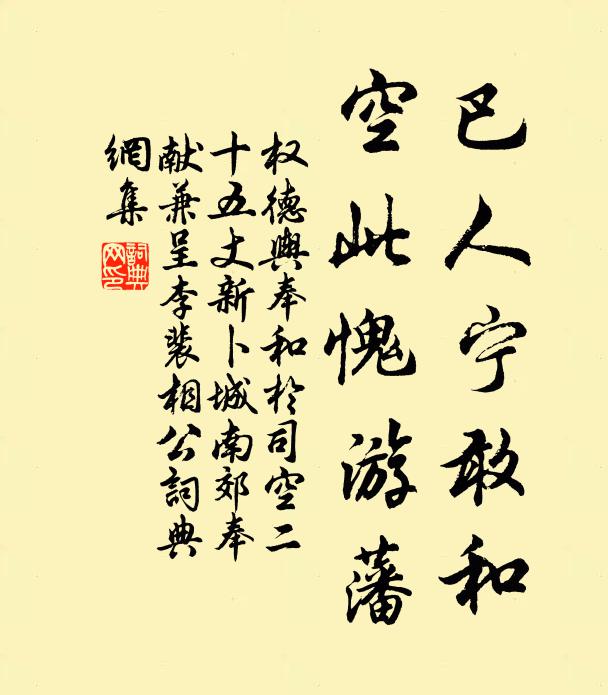 巴人宁敢和
空此愧游藩
权德舆奉和於司空二
十五丈新卜城南郊奉
献兼呈李裴相公詞典
網集
詞典網印